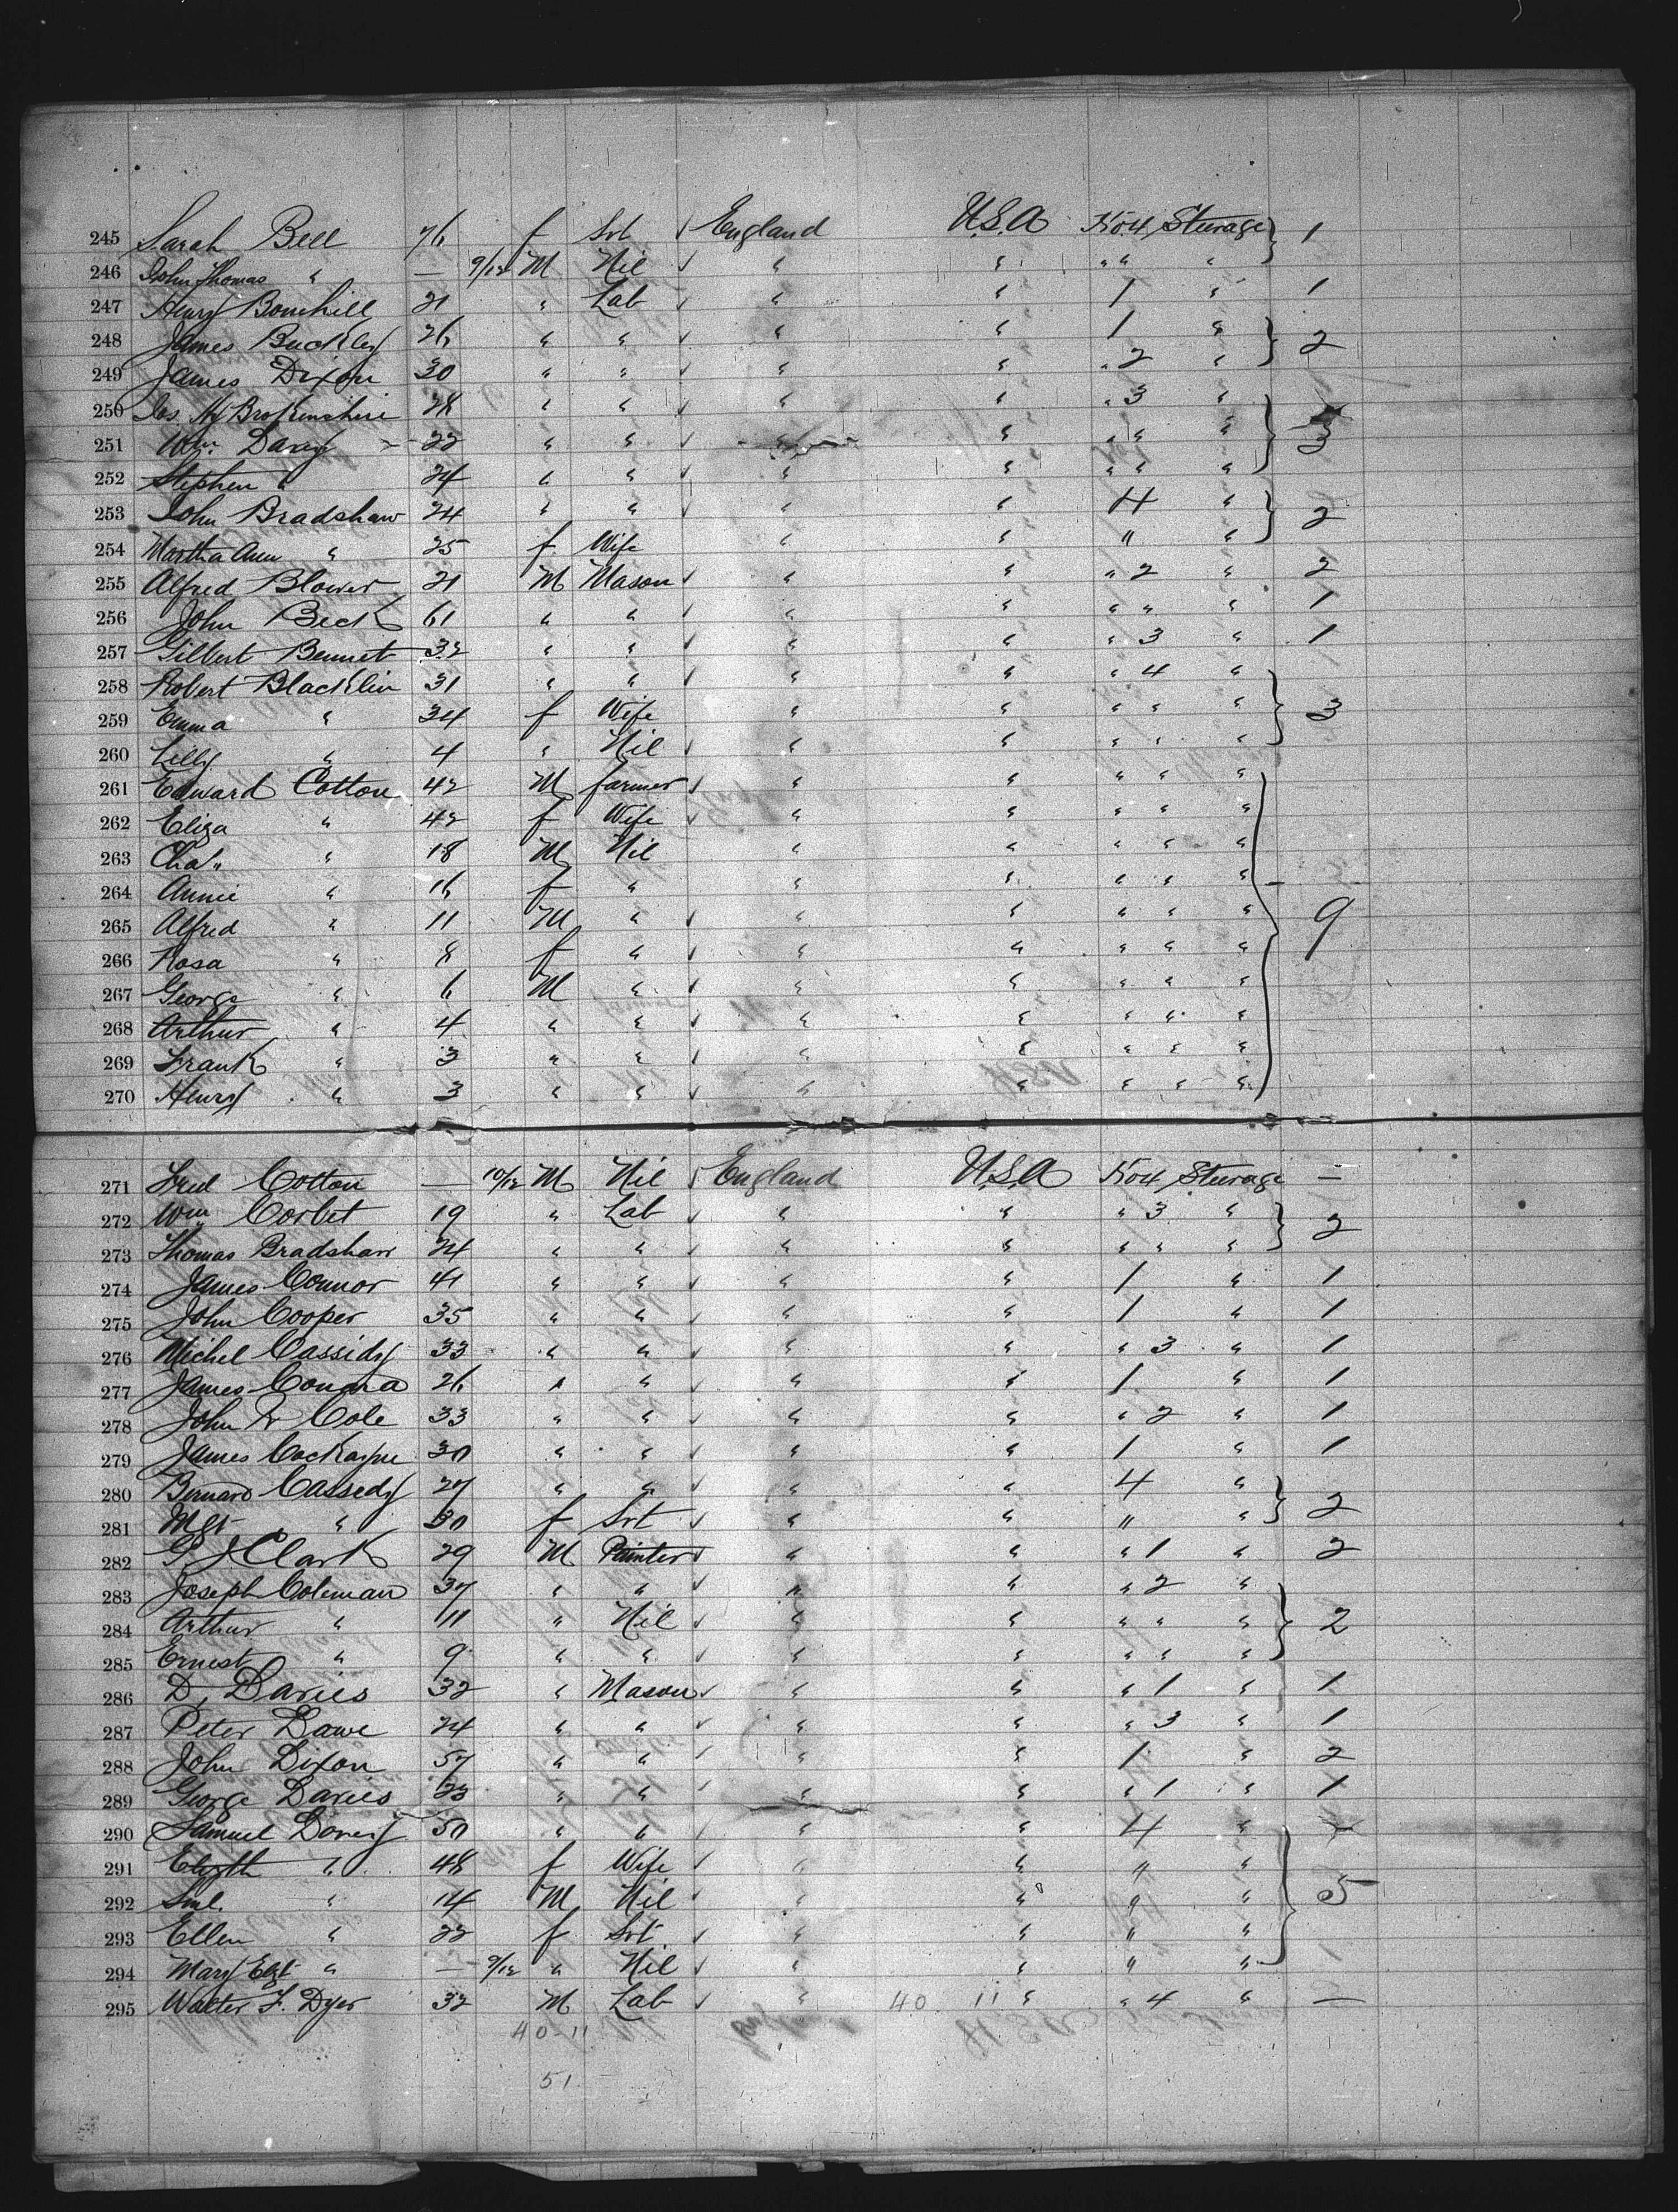 245 Sarah Bell 26 f Svt ✓ England U.S.A No 4 Steerage } 1
246 John Thomas " — 9/12 M Nil ✓ " " " " "
247 Henry Bomhill 21 " Lab ✓ " " 1 " 1
248 James Buckley 26 " " ✓ " " 1 " } 2
249 James Dixon 30 " " ✓ " " " 2 "
250 Jos. H Brokenshire 28 " " ✓ " " " 3 " } 3
251 Wm. Davey 22 " " ✓ " " " " "
252 Stephen " 24 " " ✓ " " " " "
253 John Bradshaw 24 " " ✓ " " 4 " } 2
254 Martha Ann " 25 f Wife " " " "
255 Alfred Blower 21 M Mason ✓ " " " 2 " 2
256 John Beck 61 " " ✓ " " " " " 1
257 Gilbert Bennet 32 " " ✓ " " " 3 " 1
258 Robert Blacklin 31 " " ✓ " " " 4 " } 3
259 Emma " 34 f Wife " " " " "
260 Lilly " 4 " Nil ✓ " " " " "
261 Edward Cotton 42 M farmer ✓ " " " " " } 9
262 Eliza " 42 f Wife ✓ " " " " "
263 Chas " 18 M Nil " " " " "
264 Annie " 16 f " " " " " "
265 Alfred " 11 M " ✓ " " " " "
266 Rosa " 8 f " ✓ " " " " "
267 George " 6 M " ✓ " " " " "
268 Arthur " 4 " " ✓ " " " " "
269 Frank " 3 " " ✓ " " " " "
270 Henry " 3 " " ✓ " " " " "
271 Fred Cotton — 10/12 M Nil ✓ England U.S.A No 4 Steerage —
272 Wm Corbet 19 " Lab ✓ " " " 3 " } 2
273 Thomas Bradshaw 24 " " ✓ " " " " "
274 James Connor 41 " " ✓ " " 1 " 1
275 John Cooper 35 " " ✓ " " 1 " 1
276 Michel Cassidy 33 " " ✓ " " " 3 " 1
277 James 26 " " ✓ " " 1 " 1
278 John Cole 33 " " ✓ " " " 2 " 1
279 James Cockayne 30 " " ✓ " " 1 " 1
280 Bernard Cassedy 27 " " ✓ " " 4 " } 2
281 Mgt " 30 f Svt ✓ " " " "
282 G J Clark 29 M Painter ✓ " " " 1 " 2
283 Joseph Coleman 37 " " ✓ " " " 2 " } 2
284 Arthur " 11 " Nil ✓ " " " " "
285 Ernest " 9 " " ✓ " " " " "
286 D. Davies 32 " Mason ✓ " " " 1 " 1
287 Peter Dawe 24 " " ✓ " " " 3 " 1
288 John Dixon 57 " " ✓ " " 1 " 2
289 George Davies 23 " " ✓ " " " 1 " 1
290 Samuel Dovey 50 " " ✓ " " 4 " } 5
291 Elizth " 48 f Wife ✓ " " " "
292 Sml. " 14 M Nil ✓ " " " "
293 Ellen " 22 f Svt ✓ " " " "
294 Mary Elzt " — 9/12 " Nil ✓ " " " "
295 Walter F. Dyer 32 M Lab ✓ " 40 11 " " 4 " —
40-11
51